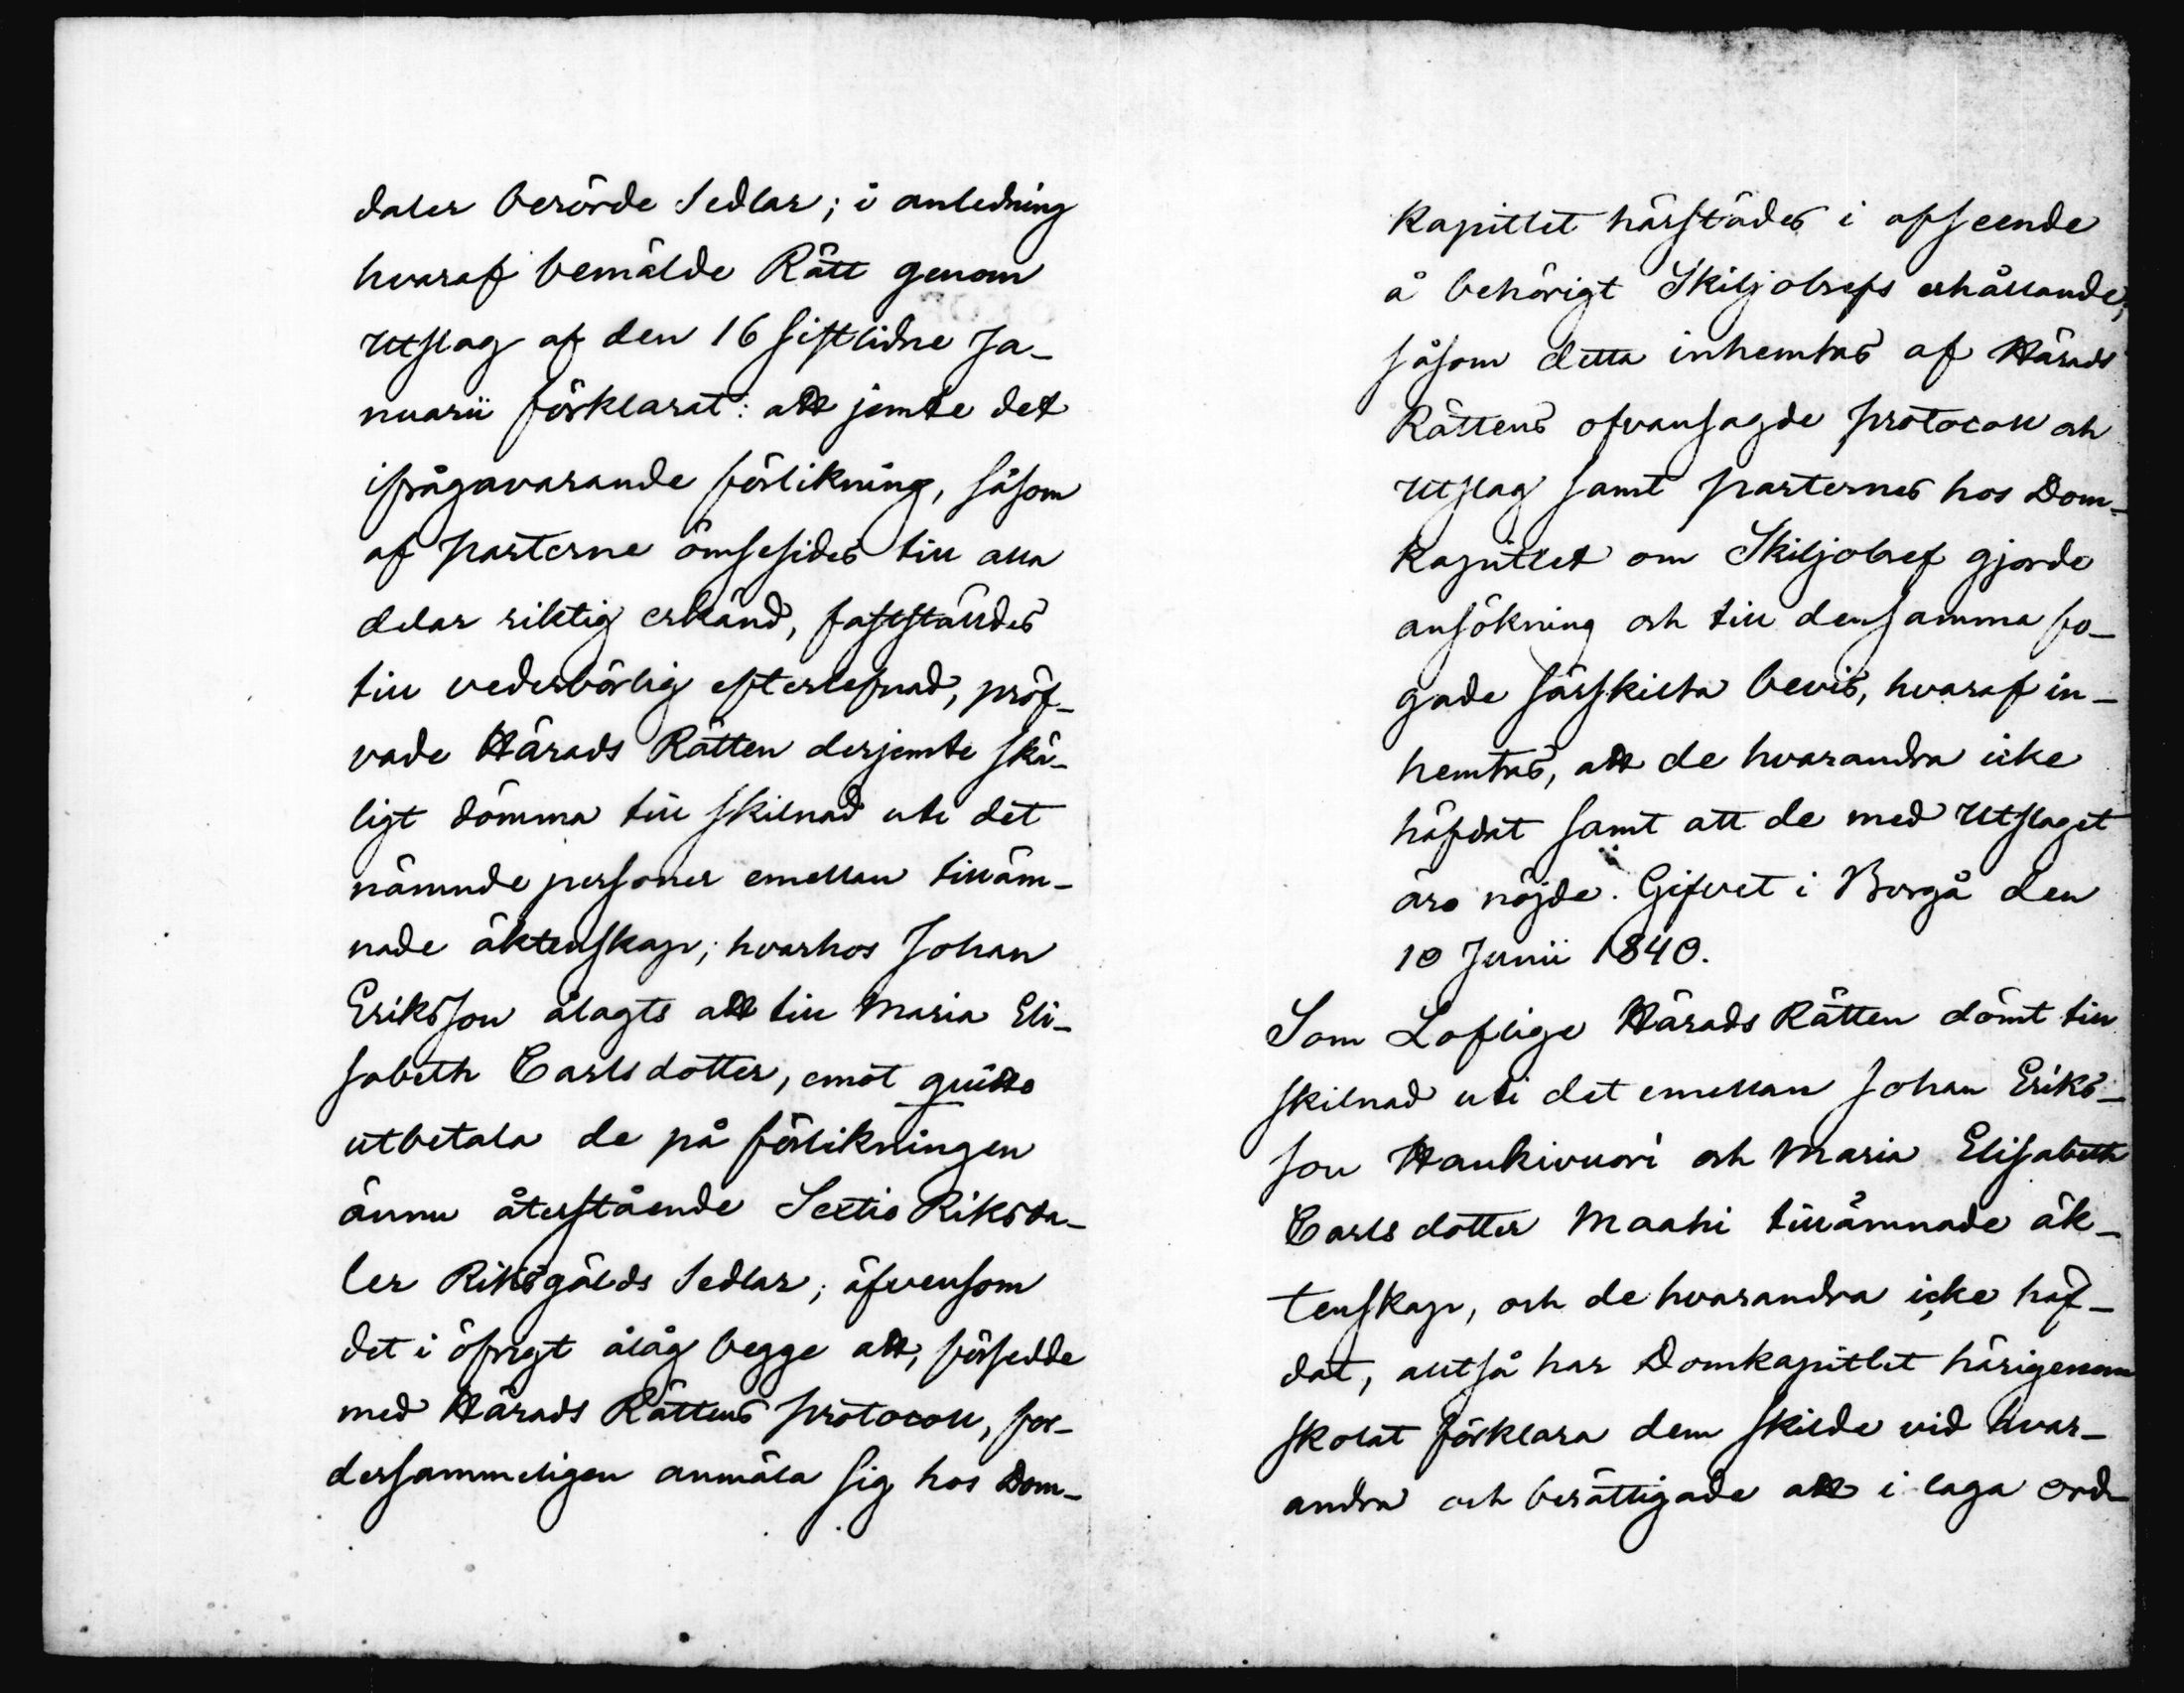 daler berörde Sedlar; i anledning
hvaraf bemälde Rätt genom
Utslag af den 16 sistlidne Ja-
nuarii förklarat: att jemte det
ifrågavarande förlikning, såsom
af parterne ömsesides till alla
delar riktig erkänd, fastställdes
till vederbörlig efterlefnad, pröf-
vade Härads Rätten derjemte skä-
ligt dömma till skilnad uti det
nämnde personer emellan tilläm-
nade äktenskap; hvarhos Johan
Eriksson ålagts att till Maria Eli-
sabeth Carlsdotter, emot quitto
utbetala de på förlikningen
ännu återstående Sextio Riksda-
ler Riksgälds Sedlar; äfvensom
det i öfrigt ålåg begge att, försedde
med Härads Rättens protocoll, for-
dersammeligen anmäla sig hos Dom-
Kapitlet härstädes i afseende
å behörigt Skiljobrefs erhållande;
såsom detta inhemtas af Härads
Rättens ofvansagde protocoll och
Utslag samt parternes hos Dom-
Kapitlet om Skiljobref gjorde
ansökning och till densamma fo-
gade särskilta bevis, hvaraf in-
hemtas, att de hvarandra icke
häfdat samt att de med Utslaget
äro nöjde. Gifvet i Borgå den
10 Junii 1840.
Som Loflige Härads Rätten dömt till
skilnad uti det emellan Johan Eriks-
son Haukivuori och Maria Elisabeth
Carlsdotter Maahi tillämnade äk-
tenskap, och de hvarandra icke häf-
dat, alltså har Domkapitlet härigenom
skolat förklara dem skilde vid hvar-
andra och berättigade att i laga ord-